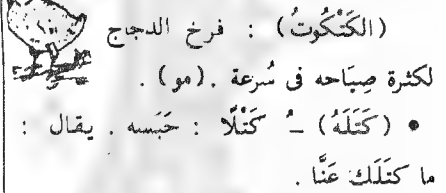 (الكَتْكُوتُ) : فرخ الدجاج
لكثرة صِيَاحه فى سُرعة . (مو) .
• (كَتَلَهُ) ـُ كَتْلًا : حَبَسه . يقال :
ما كتَلَكَ عَنَّا .